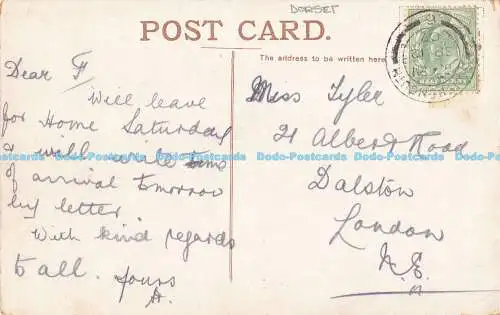 DORSET
POST CARD.
The address to be written here
Dear F
Will leave
for Home Saturday
& will write time
of arrival tomorrow
by letter
With kind regards
to all. Yours
A.
Miss Tyler
21 Albert Road
Dalston
London
N.E.
Dodo-Postcards Dodo-Postcards Dodo-Postcards Dodo-Postcards Dodo-Postcards Dodo-Postcards